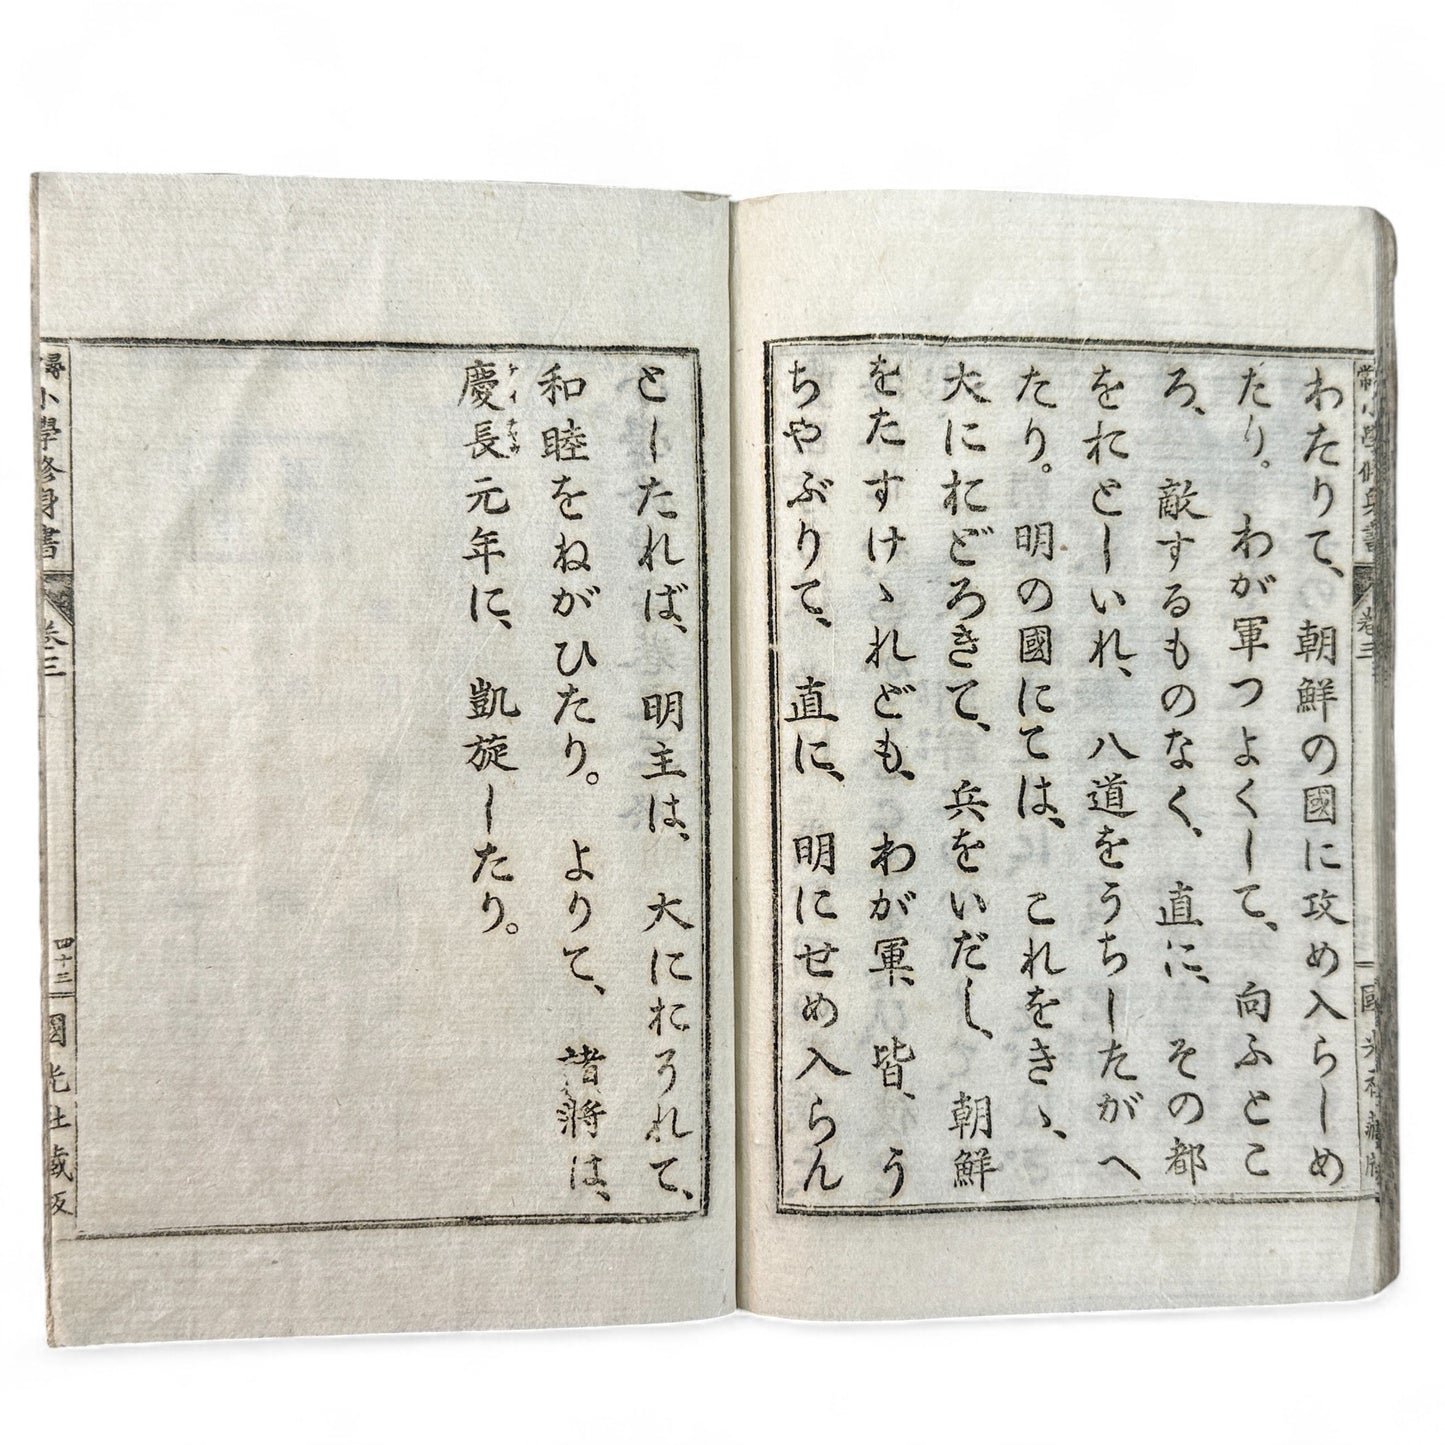 わたりて、朝鮮の國に攻め入らしめ
たり。わが軍つよくして、向ふとこ
ろ、敵するものなく、直に、その都
をおとしいれ、八道をうちしたがへ
たり。明の國にては、これをきゝ、
大におどろきて、兵をいだし、朝鮮
をたすけゝれども、わが軍、皆、う
ちやぶりて、直に、明にせめ入らん
としたれば、明主は、大におそれて、
和睦をねがひたり。よりて、諸將は、
慶長元年に、凱旋したり。
ケイ
小學修身書
卷三
四十三
國光社藏版
小學修身書
卷三
國光社藏版